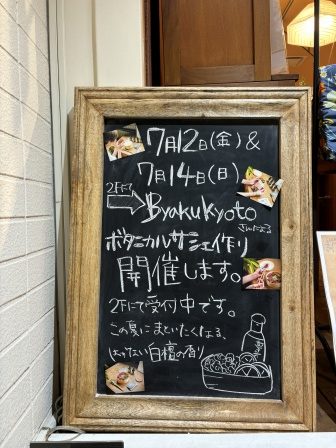 7月12日(金)&
7月14日(日)
2Fに
Byakukyoto
さんによる
ボタニカルサシェ作り
開催します。
2Fにて受付中です。
この夏にまといたくなる、
白檀の香り